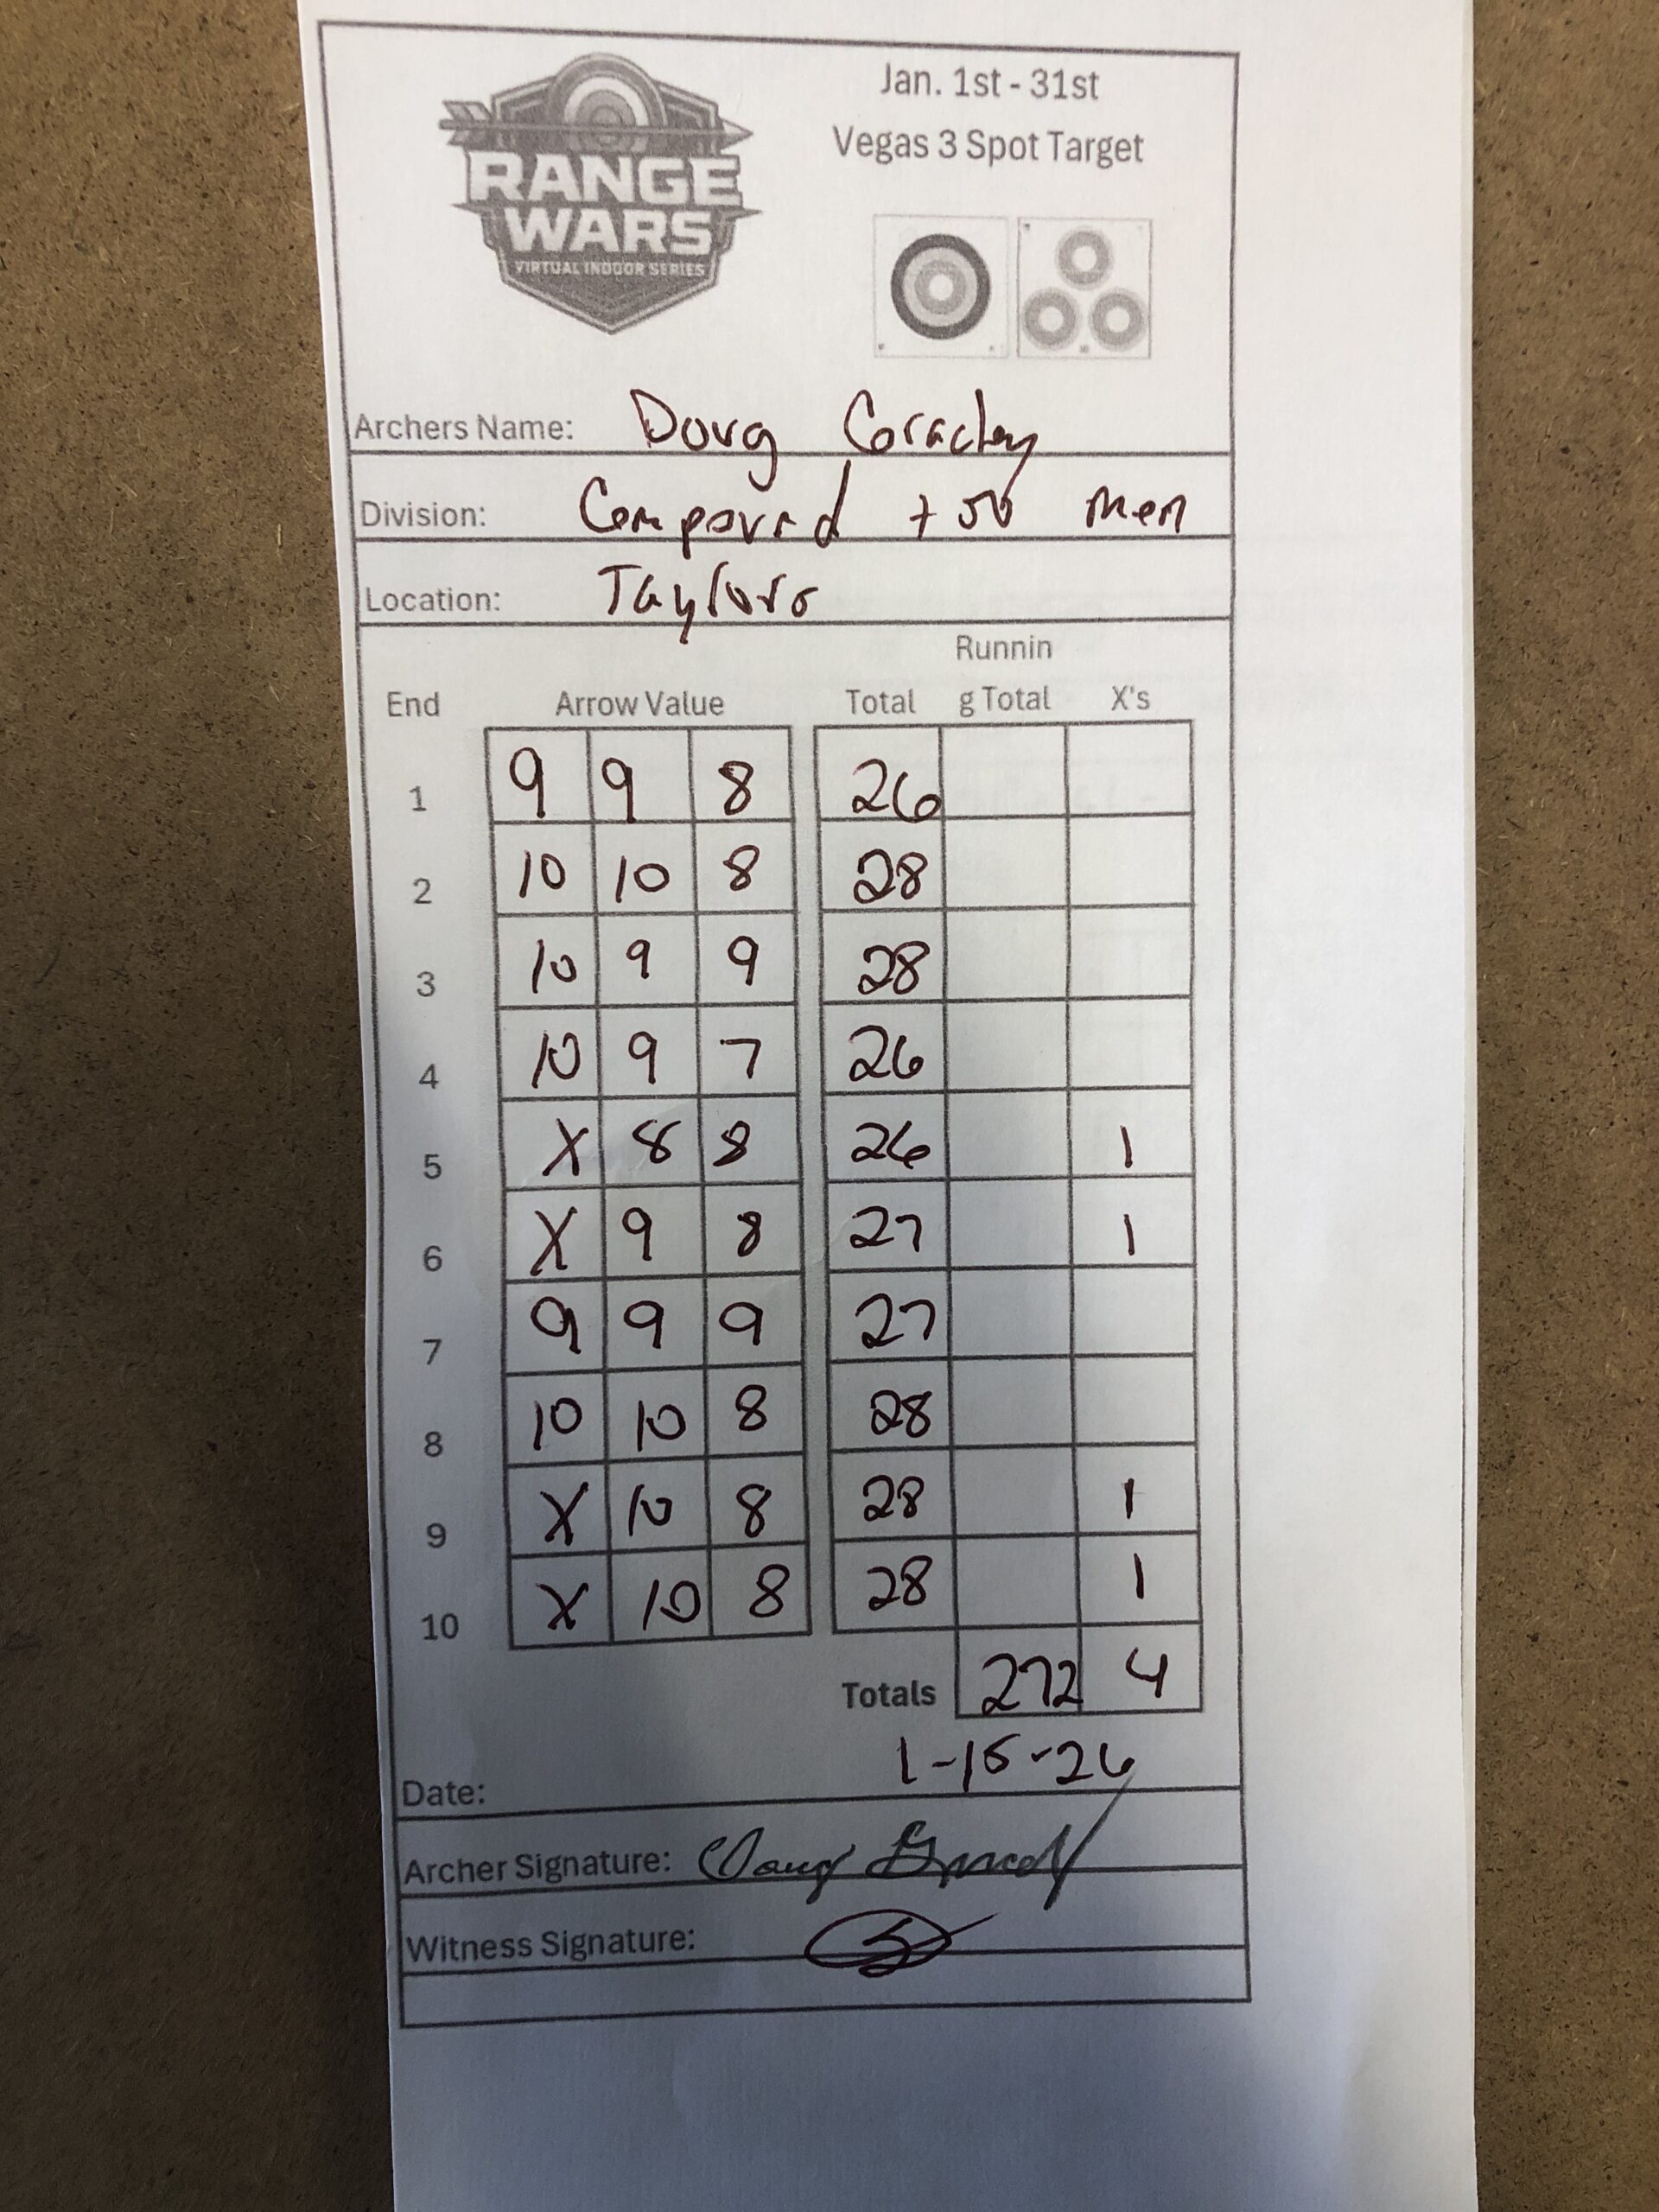 RANGE
WARS
VIRTUAL INDOOR SERIES
Jan. 1st - 31st
Vegas 3 Spot Target
Archers Name: Doug
Division: Compound +50 men
Location: Taylors
Runnin
End Arrow Value Total g Total X's
1 9 9 8 26
2 10 10 8 28
3 10 9 9 28
4 10 9 7 26
5 X 8 8 26 1
6 X 9 8 27 1
7 9 9 9 27
8 10 10 8 28
9 X 10 8 28 1
10 X 10 8 28 1
Totals 272 4
Date: 1-15-26
Archer Signature: Doug
Witness Signature: